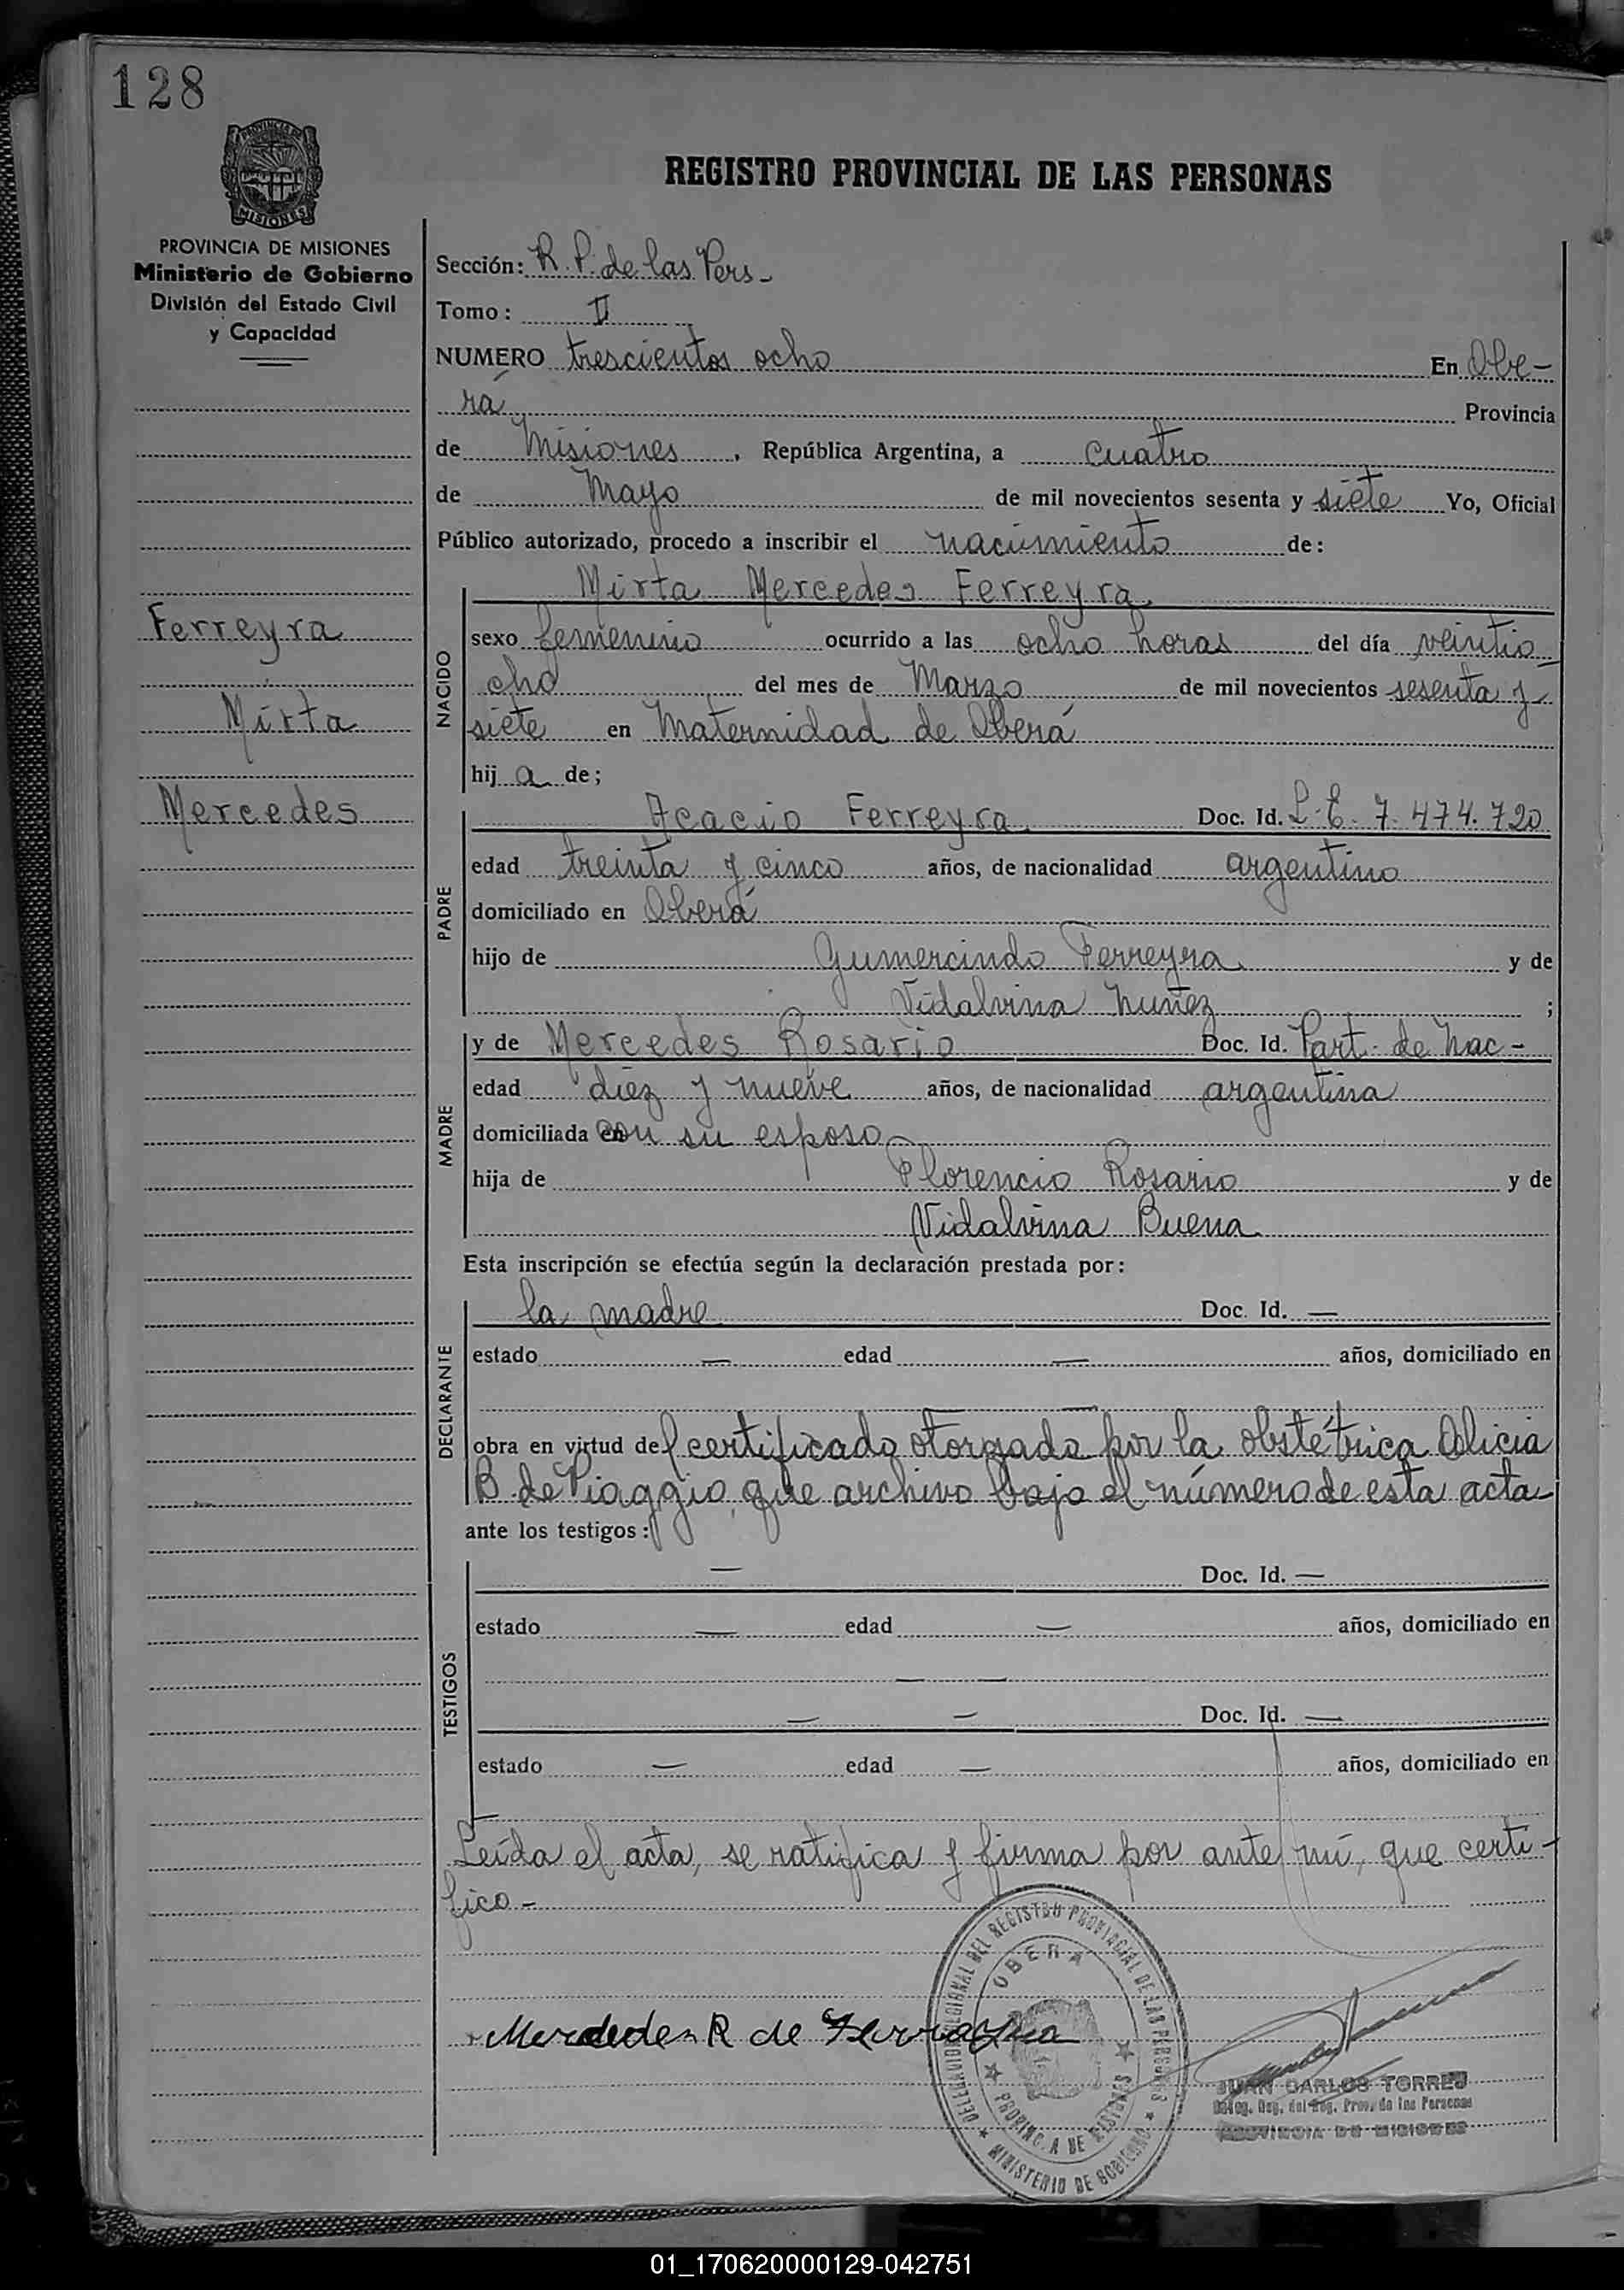 128
PROVINCIA DE
MISIONES
PROVINCIA DE MISIONES
Ministerio de Gobierno
División del Estado Civil
y Capacidad
Ferreyra
Mirta
Mercedes
REGISTRO PROVINCIAL DE LAS PERSONAS
Sección: R. P. de las Pers-
Tomo: II
NUMERO trescientos ocho En Obe-
rá Provincia
de Misiones, República Argentina, a cuatro
de Mayo de mil novecientos sesenta y siete Yo, Oficial
Público autorizado, procedo a inscribir el nacimiento de:
NACIDO
Mirta Mercedes Ferreyra
sexo femenino ocurrido a las ocho horas del día veintio-
cho del mes de Marzo de mil novecientos sesenta y
siete en Maternidad de Oberá
hij a de;
PADRE
Acacio Ferreyra Doc. Id. L.E. 7.474.720
edad treinta y cinco años, de nacionalidad argentino
domiciliado en Oberá
hijo de Gumercindo Ferreyra y de
Vidalvina Nuñez ;
MADRE
y de Mercedes Rosario Doc. Id. Part. de Nac-
edad diez y nueve años, de nacionalidad argentina
domiciliada en con su esposo
hija de Florencio Rosario y de
Vidalvina Buena
Esta inscripción se efectúa según la declaración prestada por:
DECLARANTE
la madre Doc. Id. —
estado — edad — años, domiciliado en
—
obra en virtud del certificado otorgado por la obstétrica Alicia
B. de Piaggio, que archivo bajo el número de esta acta-
ante los testigos:
TESTIGOS
— Doc. Id. —
estado — edad — años, domiciliado en
— —
— — Doc. Id. —
estado — edad — años, domiciliado en
Leída el acta, se ratifica y firma por ante mí, que certi-
fico-
Mercedes R de Ferreyra
DELEGACION REGIONAL DEL REGISTRO PROVINCIAL DE LAS PERSONAS
OBERA
PROVINCIA DE MISIONES
MINISTERIO DE GOBIERNO
JUAN CARLOS TORRES
Deleg. Reg. del Reg. Prov. de las Personas
PROVINCIA DE MISIONES
01_170620000129-042751